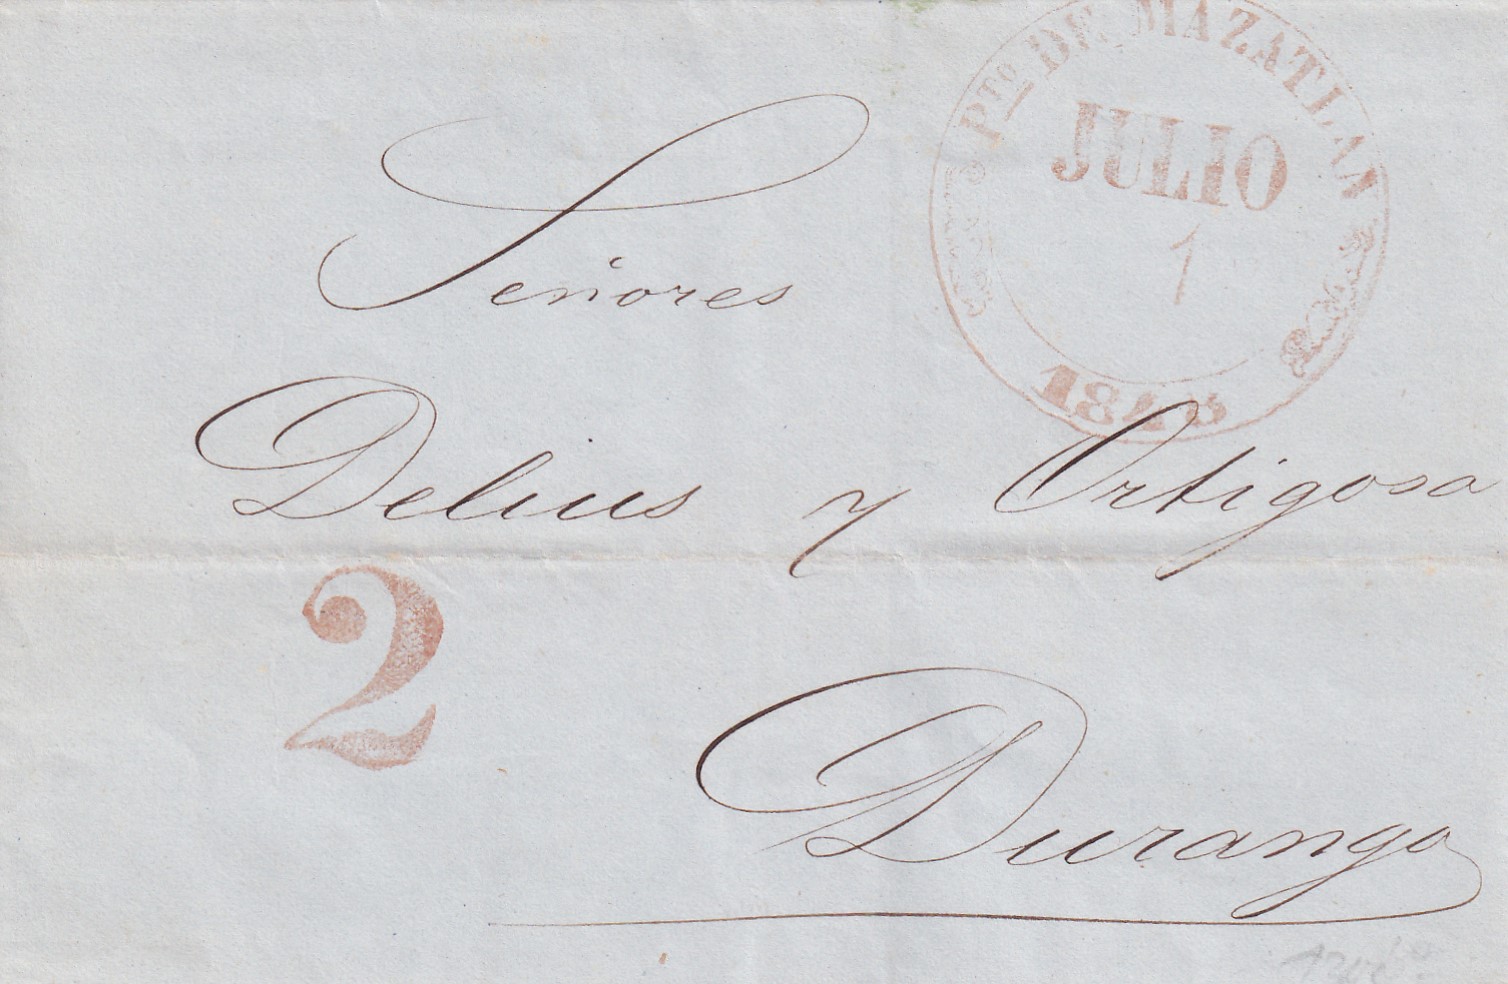 Pto DE MAZATLAN
JULIO
1
Señores
Delius y Ortigosa
2
Durango